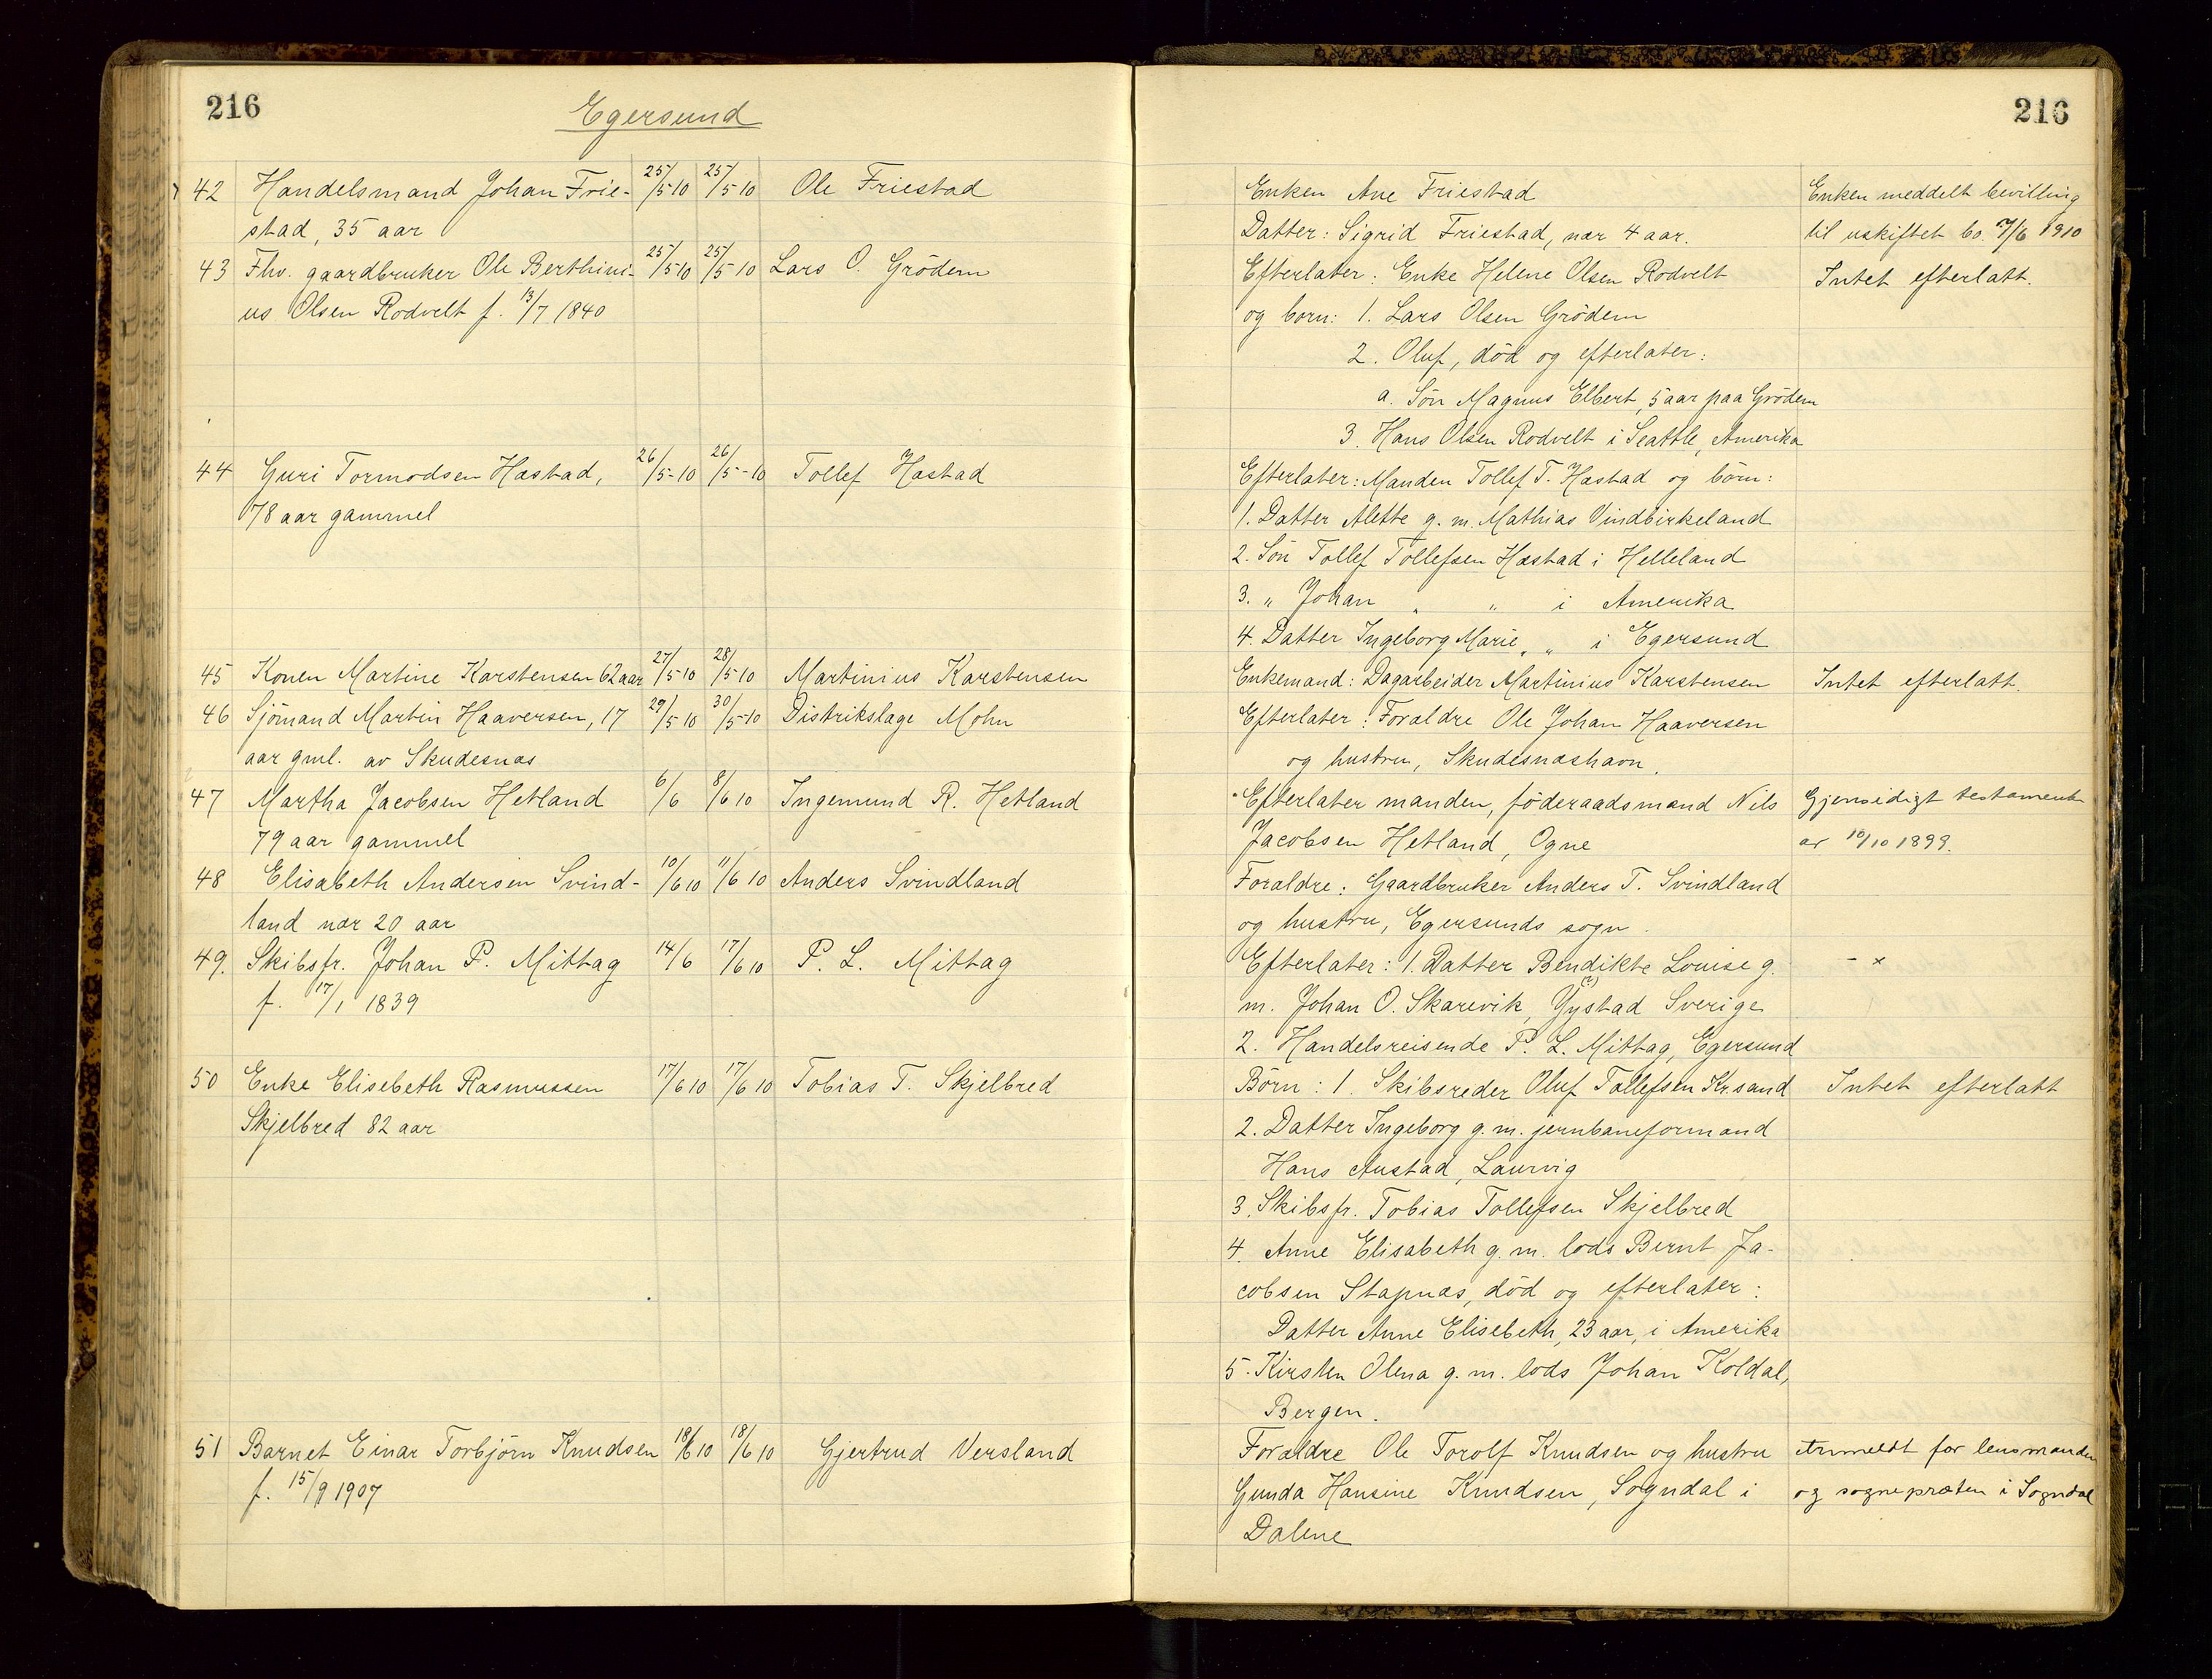 216
Egersund
42 Handelsmand Johan Frie- 25/5 10 25/5 10 Ole Friestad
stad, 35 aar
43 Fhv. gaardbruker Ole Berthini- 25/5 10 25/5 10 Lars O. Grödem
us Olsen Rodvelt f. 13/7 1840
44 Guri Tormodsen Hæstad, 26/5-10 26/5-10 Tollef Hæstad
78 aar gammel
45 Konen Martine Karstensen 62 aar 27/5-10 28/5 10 Martinius Karstensen
46 Sjömand Martin Haaversen, 17 29/5 10 30/5-10 Distrikslæge Mohn
aar gml. av Skudesnæs
47 Martha Jacobsen Hetland 6/6 8/6 10 Ingemund R. Hetland
79 aar gammel
48 Elisabeth Andersen Svind- 10/6 10 11/6 10 Anders Svindland
land nær 20 aar
49. Skibsfr. Johan P. Mittag 14/6 17/6 10 P. L. Mittag
f. 17/1 1839
50 Enke Elisebeth Rasmussen 17/6 10 17/6 10 Tobias T. Skjelbred
Skjelbred 82 aar
51 Barnet Einar Torbjörn Knudsen 18/6 10 18/6 10 Gjertrud Versland
f. 15/9 1907
216
Enken Ane Friestad Enken meddelt bevilling
Datter: Sigrid Friestad, nær 4 aar. til uskiftet bo. 7/6 1910
Efterlater: Enke Helene Olsen Rodvelt Intet efterlatt.
og born: 1. Lars Olsen Grödem
2. Oluf, död og efterlater:
a. Sön Magnus Elbert, 5 aar paa Grödem
3. Hans Olsen Rodvelt i Seattle, Amerika
Efterlater: Manden Tollef T. Hæstad og börn:
1. Datter Alette g. m. Mathias Vindbirkeland
2. Sön Tollef Tollefsen Hæstad i Helleland
3. " Johan " " i Amerika
4. Datter Ingeborg Marie " " i Egersund
Enkemand: Dagarbeider Martinius Karstensen Intet efterlatt.
Efterlater: Forældre Ole Johan Haaversen
og hustru, Skudesnæshavn.
Efterlater manden, föderaadsmand Nils Gjensidigt testamente
Jacobsen Hetland, Ogne av 10/10 1899.
Foraldre: Gaardbruker Anders T. Svindland
og hustru, Egersunds sogn.
Efterlater: 1. Datter Bendikte Louise g. - x
m. Johan O. Skarevik, Yystad (?) Sverige
2. Handelsreisende P. L. Mittag, Egersund
Börn: 1. Skibsreder Oluf Tollefsen Kr.sand Intet efterlatt
2. Datter Ingeborg g. m. jernbaneformand
Hans Austad, Laurvig
3. Skibsfr. Tobias Tollefsen Skjelbred
4. Anne Elisabeth g. m. lods Bernt Ja-
cobsen Stapnæs, död og efterlater:
Datter Anne Elisebeth, 23 aar, i Amerika
5. Kirsten Olena g. m. lods Johan Koldal,
Bergen.
Forældre Ole Torolf Knudsen og hustru Anmeldt for lensmanden
Gunda Hansine Knudsen, Sogndal i og sognepræten i Sogndal
Dalene